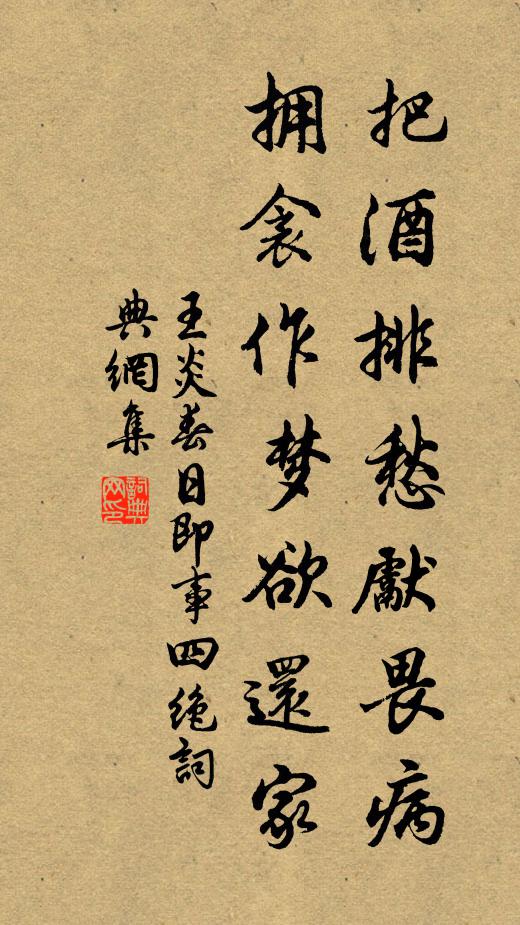 把酒排愁獻畏病
拥衾作梦欲還家
王炎春日即事四绝詞
典網集
詞典
网印